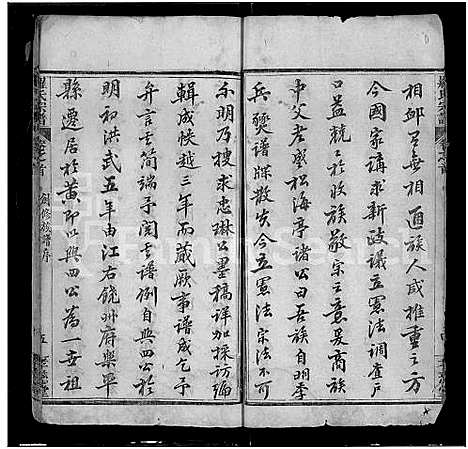 相邱吕無相通族人咸推重之方
今國家講求新政議立憲法調查戶
口益兢兢於收族敬宗之意爰商族
中父老咸松海亭諸公曰吾族自明季
兵燹譜牒散失今立憲法宗法不可
不明乃搜求惠琳公墨稿詳加採訪編
輯成帙越三年而蕆厥事譜成乞予
弁言其簡端予閱其譜例自興四公於
明初洪武五年由江右饒州府樂平
縣遷居於黃即以興四公為一世祖
氏宗譜
卷之首
創修族譜序
五
FamilySearch